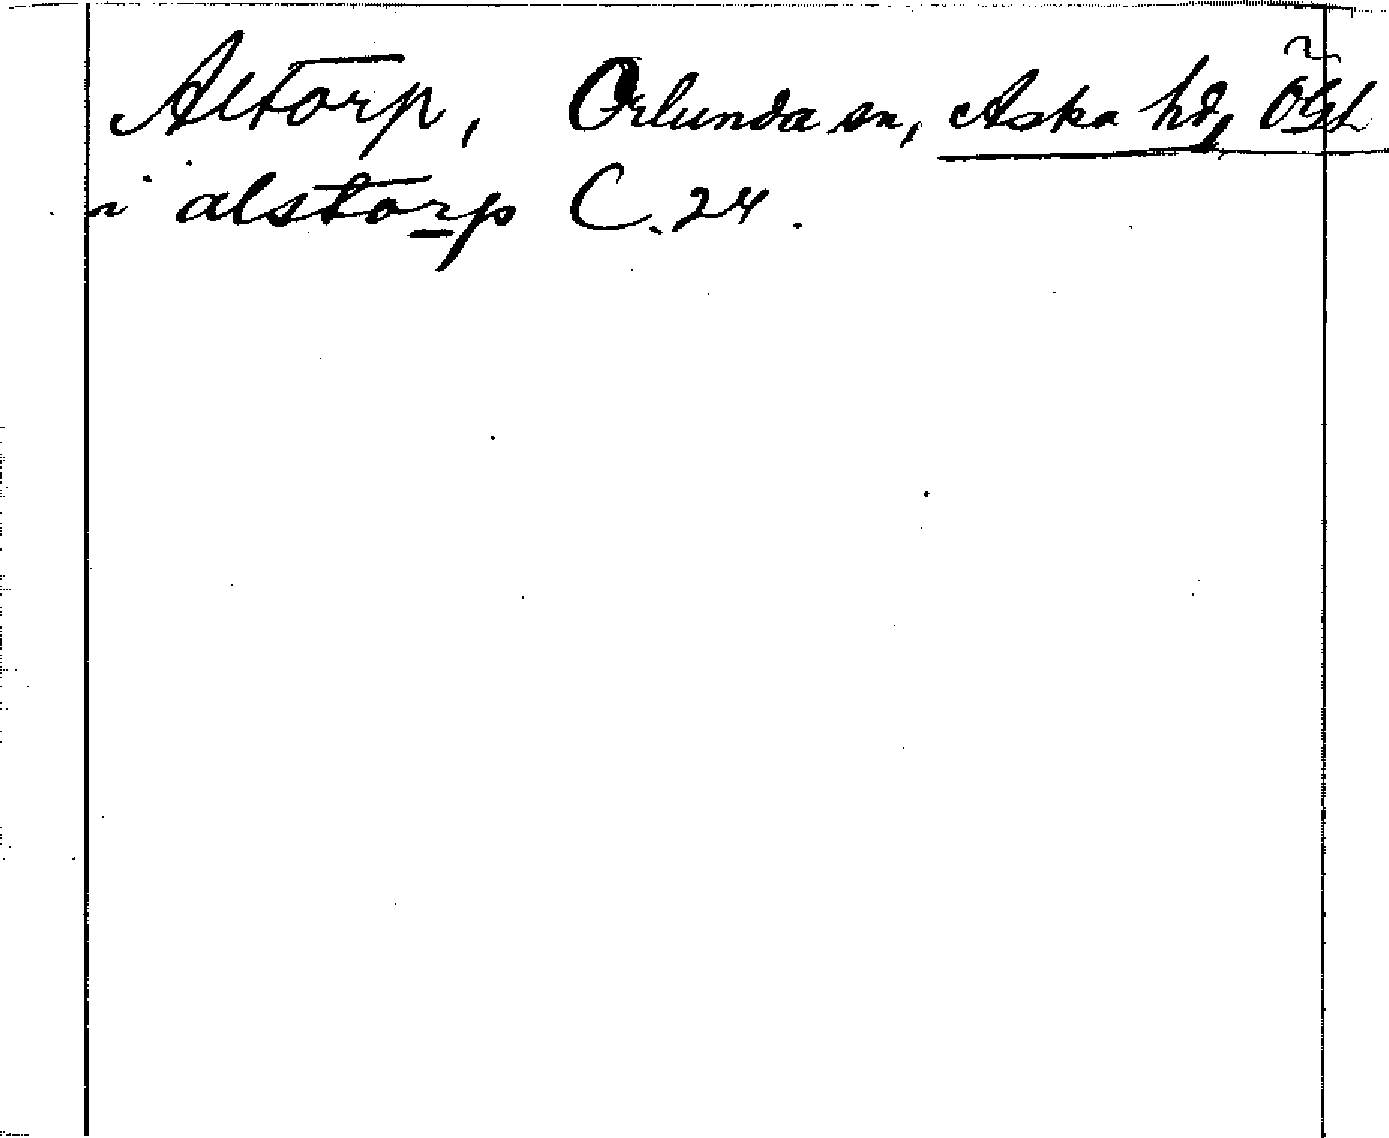 Altorp, Orlunda sn, Aska hd, Ögl
i alstorp C. 24.